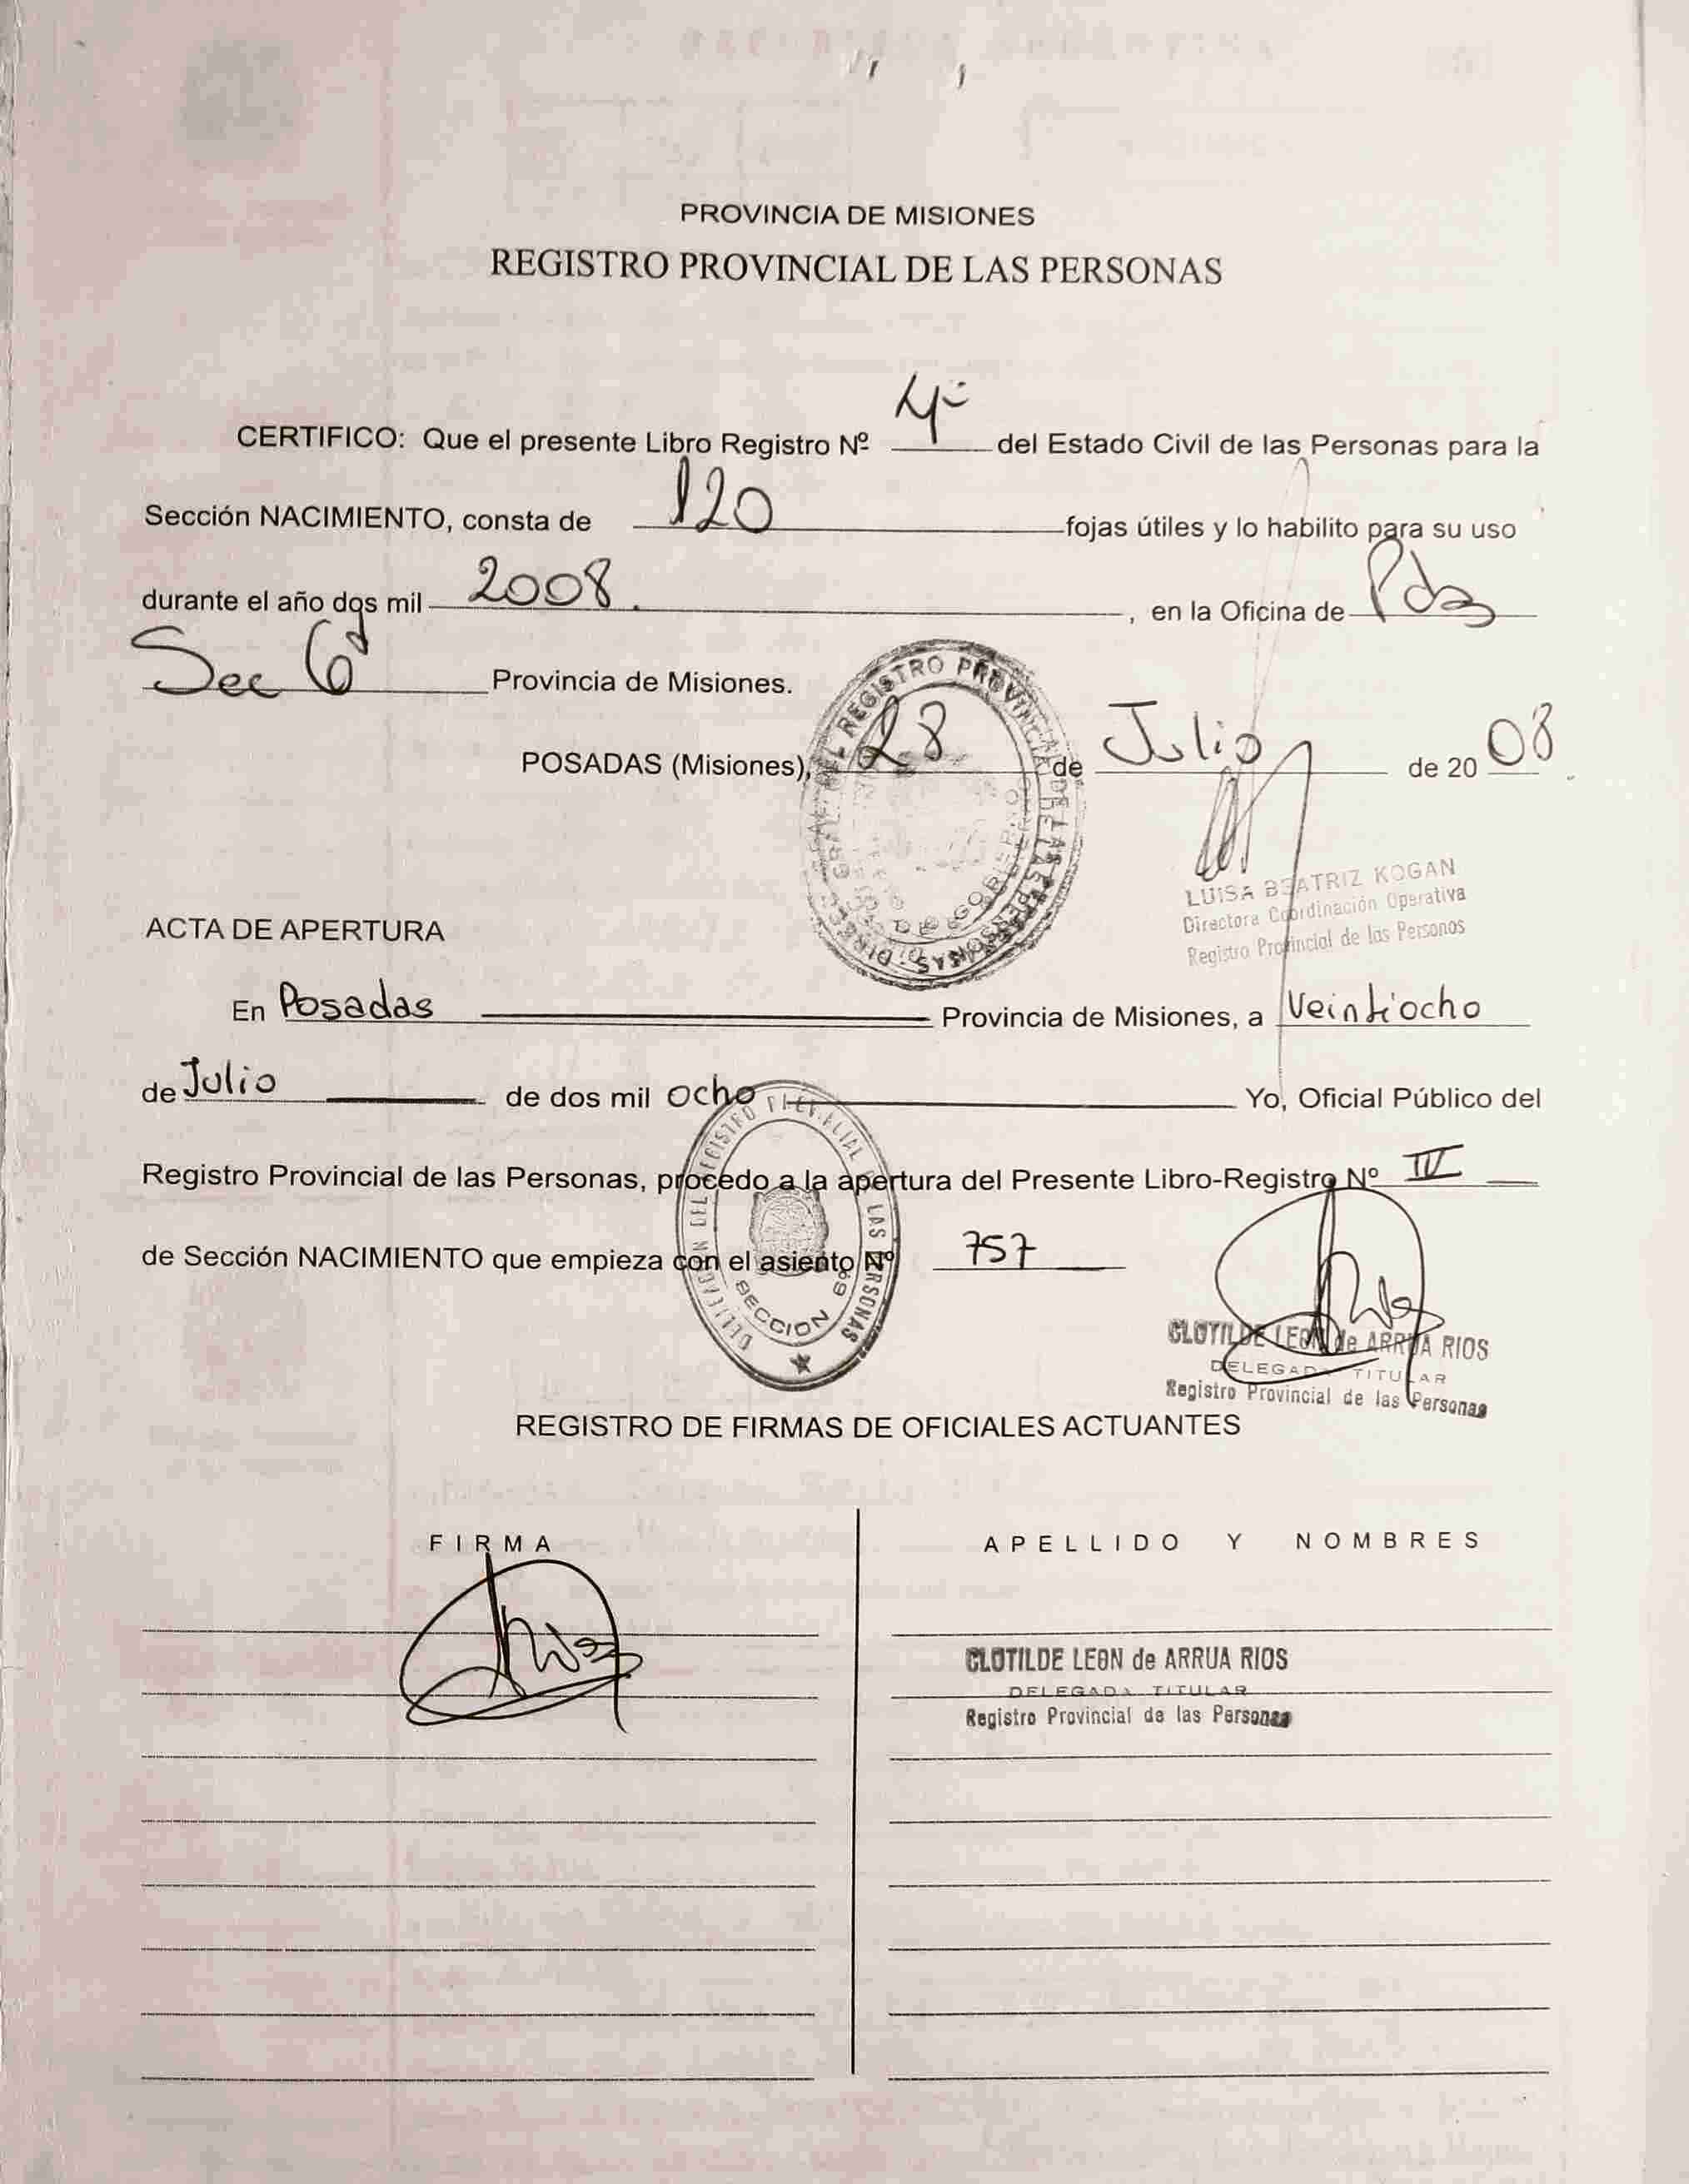 PROVINCIA DE MISIONES
REGISTRO PROVINCIAL DE LAS PERSONAS
CERTIFICO: Que el presente Libro Registro Nº 4º del Estado Civil de las Personas para la
Sección NACIMIENTO, consta de 120 fojas útiles y lo habilito para su uso
durante el año dos mil 2008. , en la Oficina de Pdas
Sec 6ª Provincia de Misiones.
POSADAS (Misiones), 28 de Julio de 20 08
LUISA BEATRIZ KOGAN
Directora Coordinación Operativa
Registro Provincial de las Personas
ACTA DE APERTURA
En Posadas Provincia de Misiones, a Veintiocho
de Julio de dos mil ocho Yo, Oficial Público del
Registro Provincial de las Personas, procedo a la apertura del Presente Libro-Registro Nº IV
de Sección NACIMIENTO que empieza con el asiento Nº 757
SECCION 6º
CLOTILDE LEON de ARRUA RIOS
DELEGADA TITULAR
Registro Provincial de las Personas
REGISTRO DE FIRMAS DE OFICIALES ACTUANTES
FIRMA APELLIDO Y NOMBRES
CLOTILDE LEON de ARRUA RIOS
DELEGADA TITULAR
Registro Provincial de las Personas